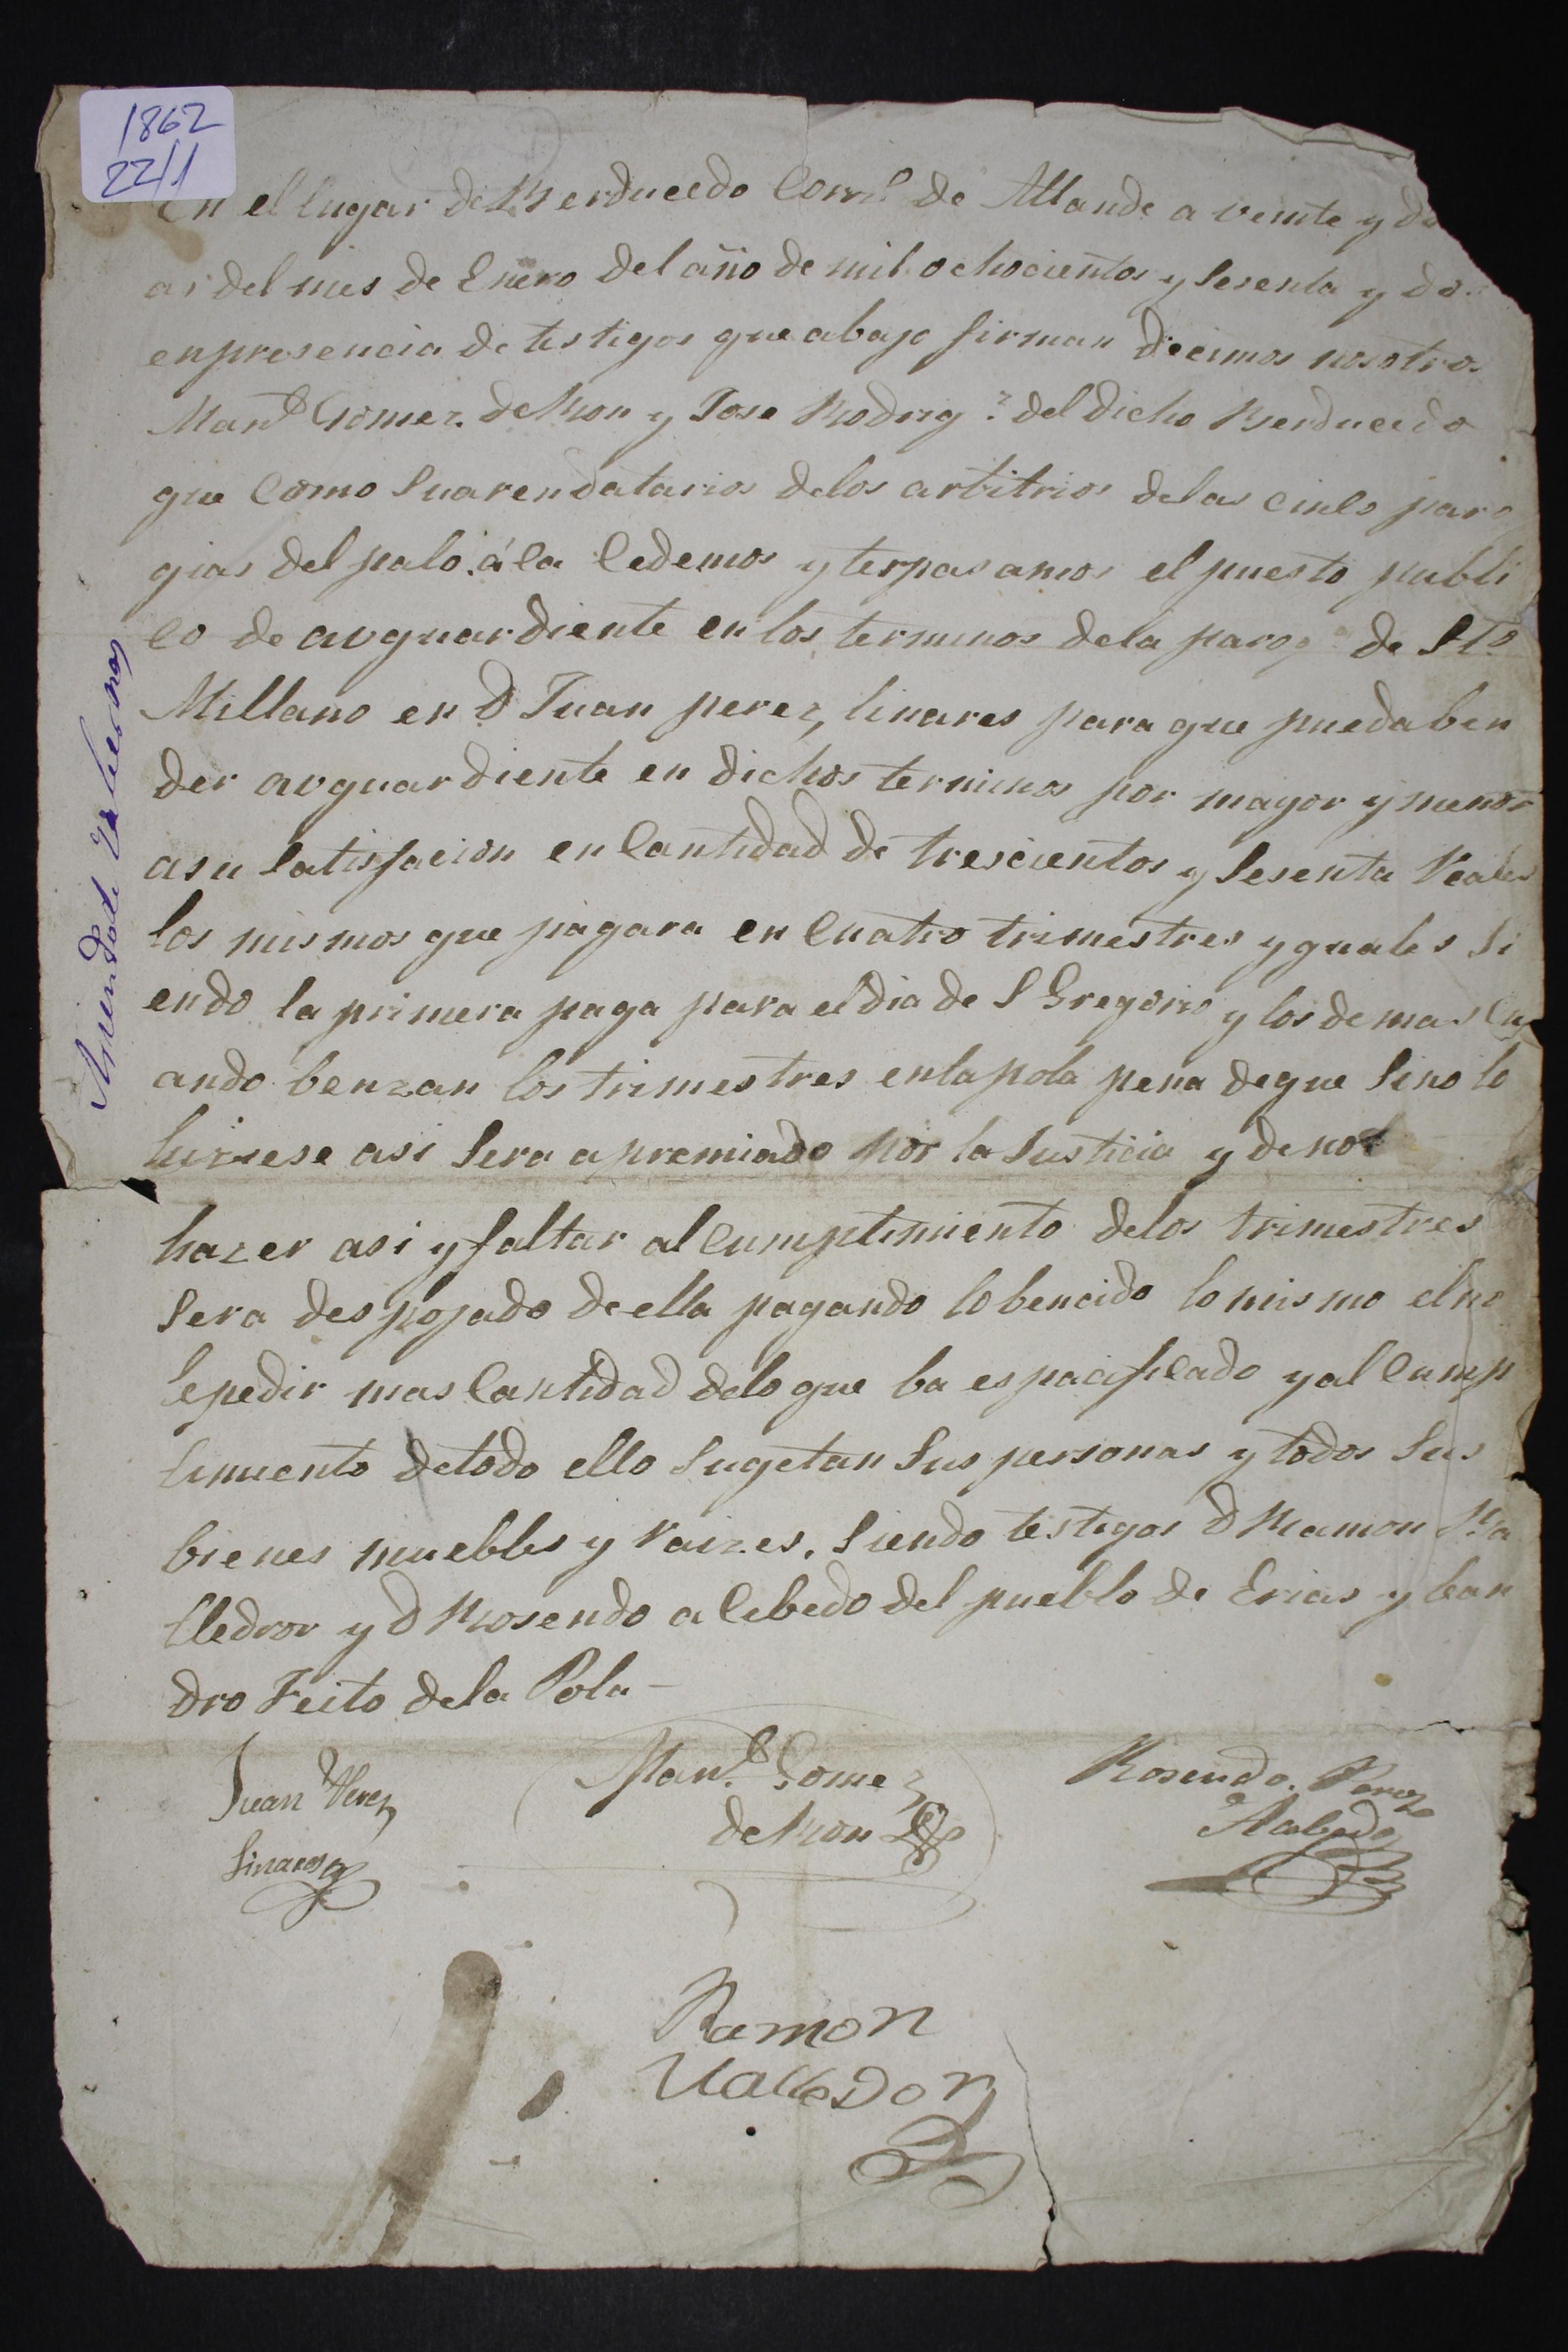 1862
22/1
En el lugar de Berducedo Conc.l de Allande a veinte y do
as del mes de Enero del año de mil ochocientos y sesenta y dos
enpresencia de testigos que abajo firman decimos nosotros
Man.l Gomez de Ron y Jose Rodrig.z del dicho Berducedo
que como suarendatarios delos arbitrios delas cinco paro
gias del palo. á la cedemos y terpasamos el puesto publi
co de avguardiente en los terminos dela paroq.a de Sto
Millano en D Juan perez, linares para que puedaben
der avguardiente en dichos terminos por mayor y menor
asu satisfacion en cantidad de trescientos y sesenta reales
los mismos que pagara en cuatro trimestres yguales si
endo la primera paga para el dia de S Gregorio y los demas cu
ando benzan los trimestres enlapola pena deque sino lo
hiziese asi sera apremiado por la Justicia y de no
hazer asi y faltar al cumplimiento delos trimestres
sera despojado de ella pagando lobencido lo mismo el no
lepedir mas cantidad delo que ba espacificado y al cump
limiento detodo ello sugetan sus personas y todos sus
bienes muebles y raizes. siendo testigos D Ramon Va
lledror y D Rosendo acebedo del pueblo de Erias y ban
dro Feito dela Pola
Juan Perez
Linares
Man.l Gomez
de Ron
Rosendo. Perez
Acebedo
Ramon
Valledor
Arriendo de